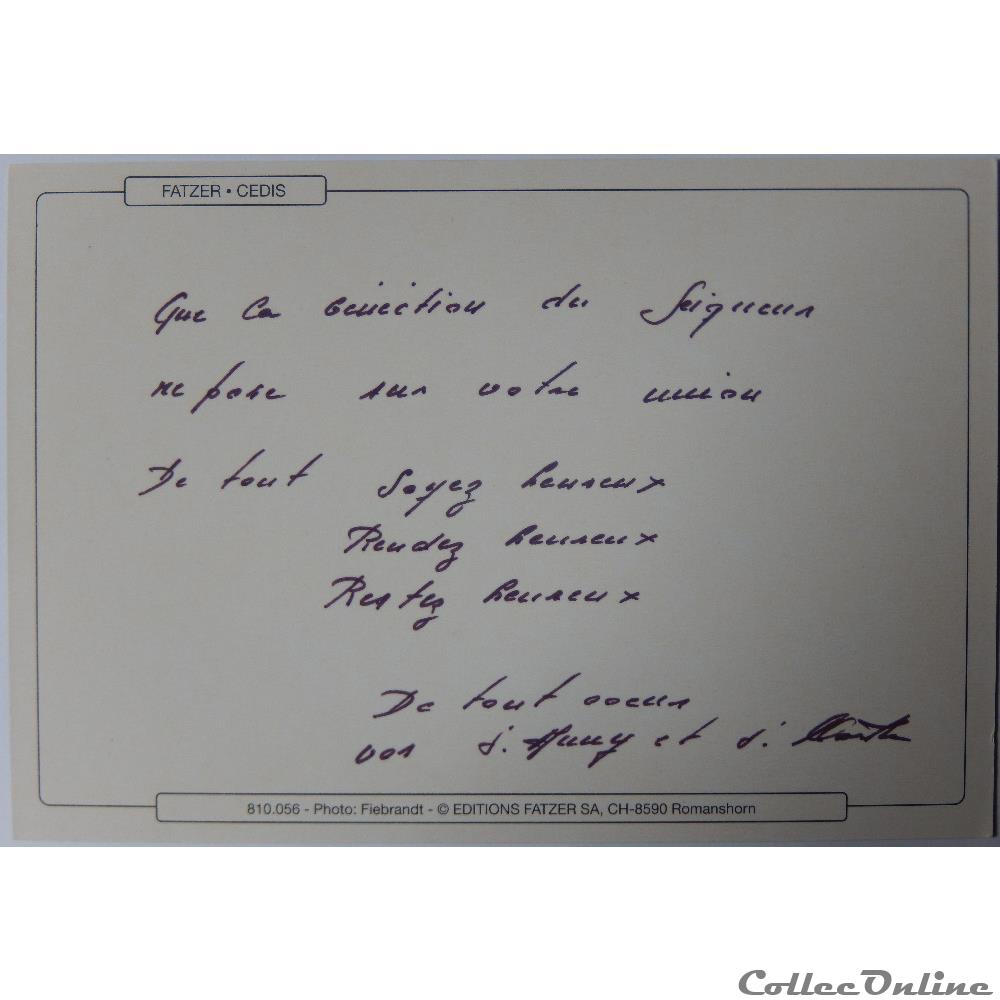 FATZER • CEDIS
Que la bénéction du Seigneur
repose sur votre union
De tout Soyez heureux
Rendez heureux
Restez heureux
De tout coeur
vos J. Anny et J.
810.056 - Photo: Fiebrandt - © EDITIONS FATZER SA, CH-8590 Romanshorn
CollecOnline